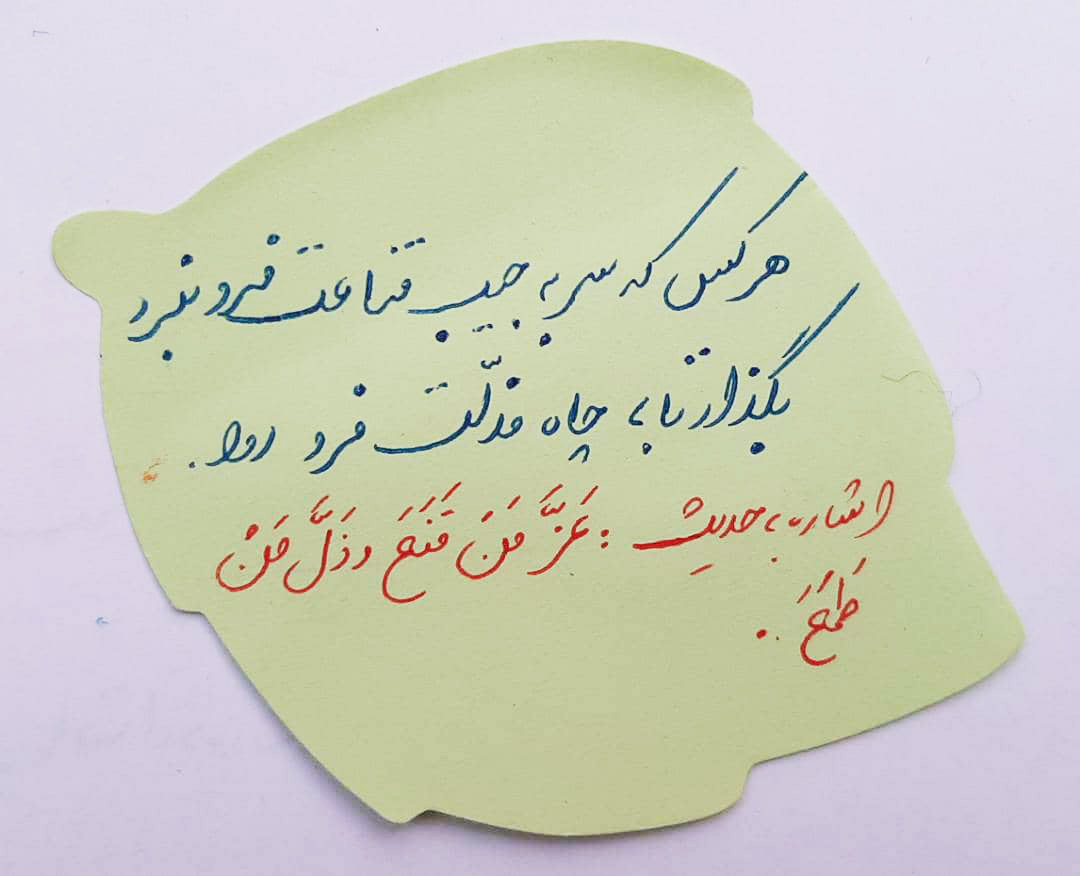 هر کس که سر به جیب قناعت فرو نبرد
بگذار تا به چاه مذلّت فرو رود.
اشاره به حدیثِ : عَزَّ مَنْ قَنَعَ و ذَلَّ مَنْ
طَمَعَ ..